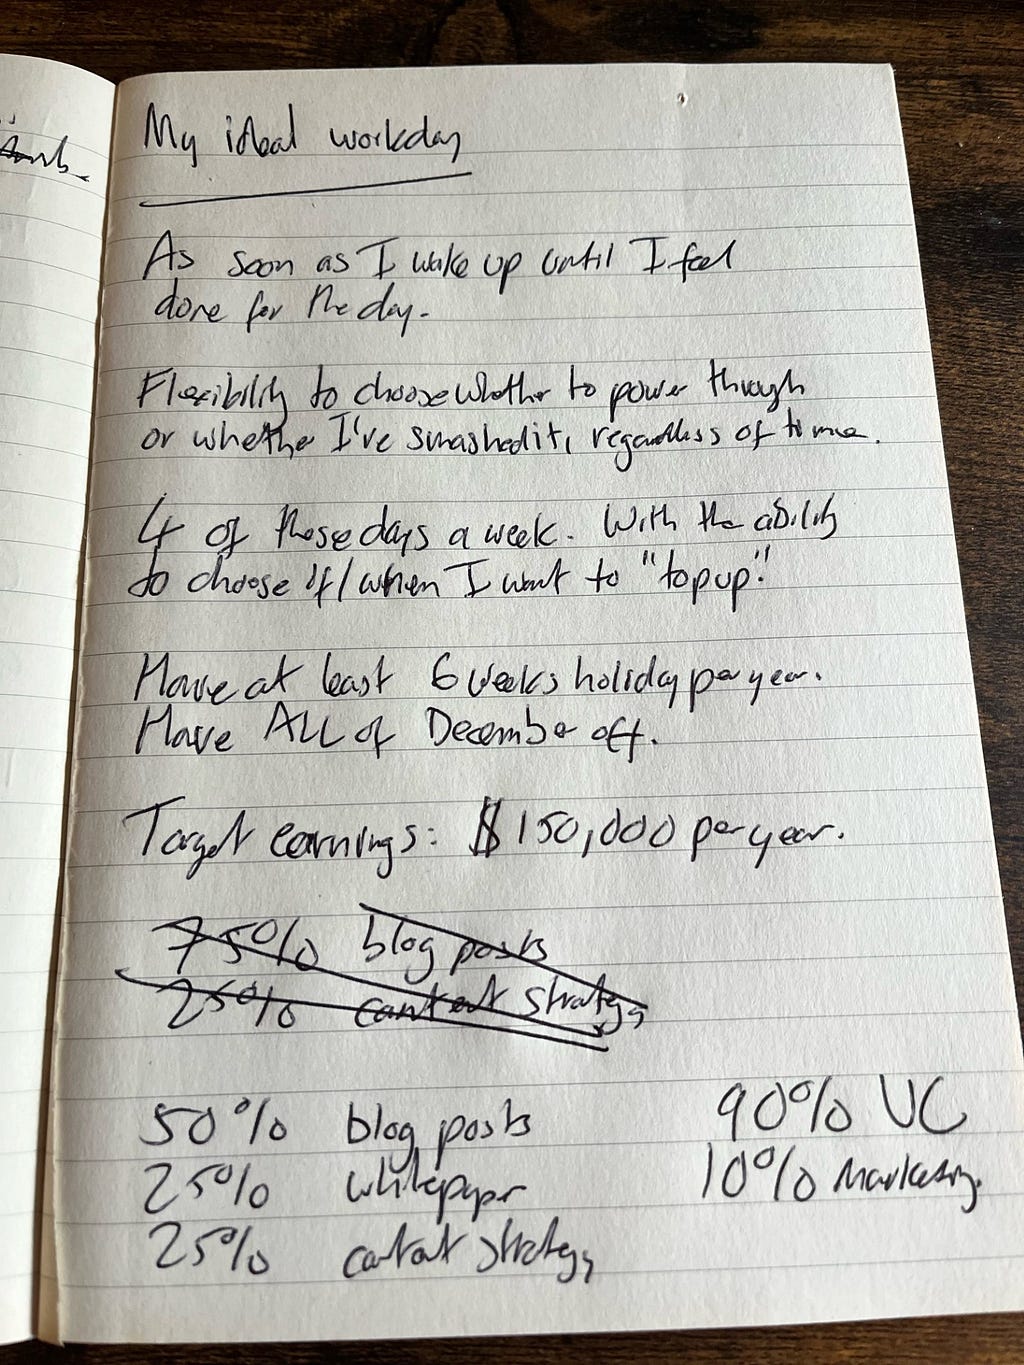 My ideal workday
As soon as I wake up until I feel
done for the day.
Flexibility to choose whether to power through
or whether I've smashed it, regardless of time.
4 of these days a week. With the ability
to choose if/when I want to "top up."
Have at least 6 weeks holiday per year.
Have ALL of December off.
Target earnings: $150,000 per year.
75% blog posts
25% content strategy
50% blog posts
25% whitepaper
25% content strategy
90% VC
10% Marketing.